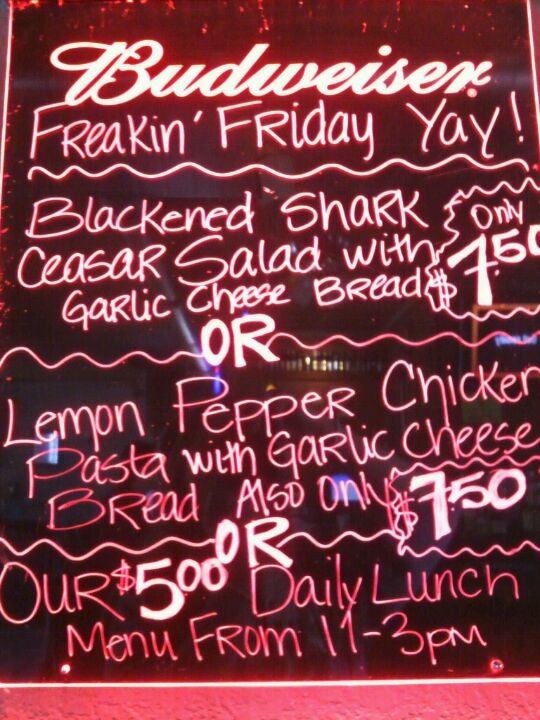 Budweiser
Freakin' Friday Yay!
Blackened Shark
Ceasar Salad with
Garlic Cheese Bread
Only
$7.50
OR
Lemon Pepper Chicken
Pasta with Garlic Cheese
Bread Also Only $7.50
OR
Our $5.00 Daily Lunch
Menu From 11-3pm